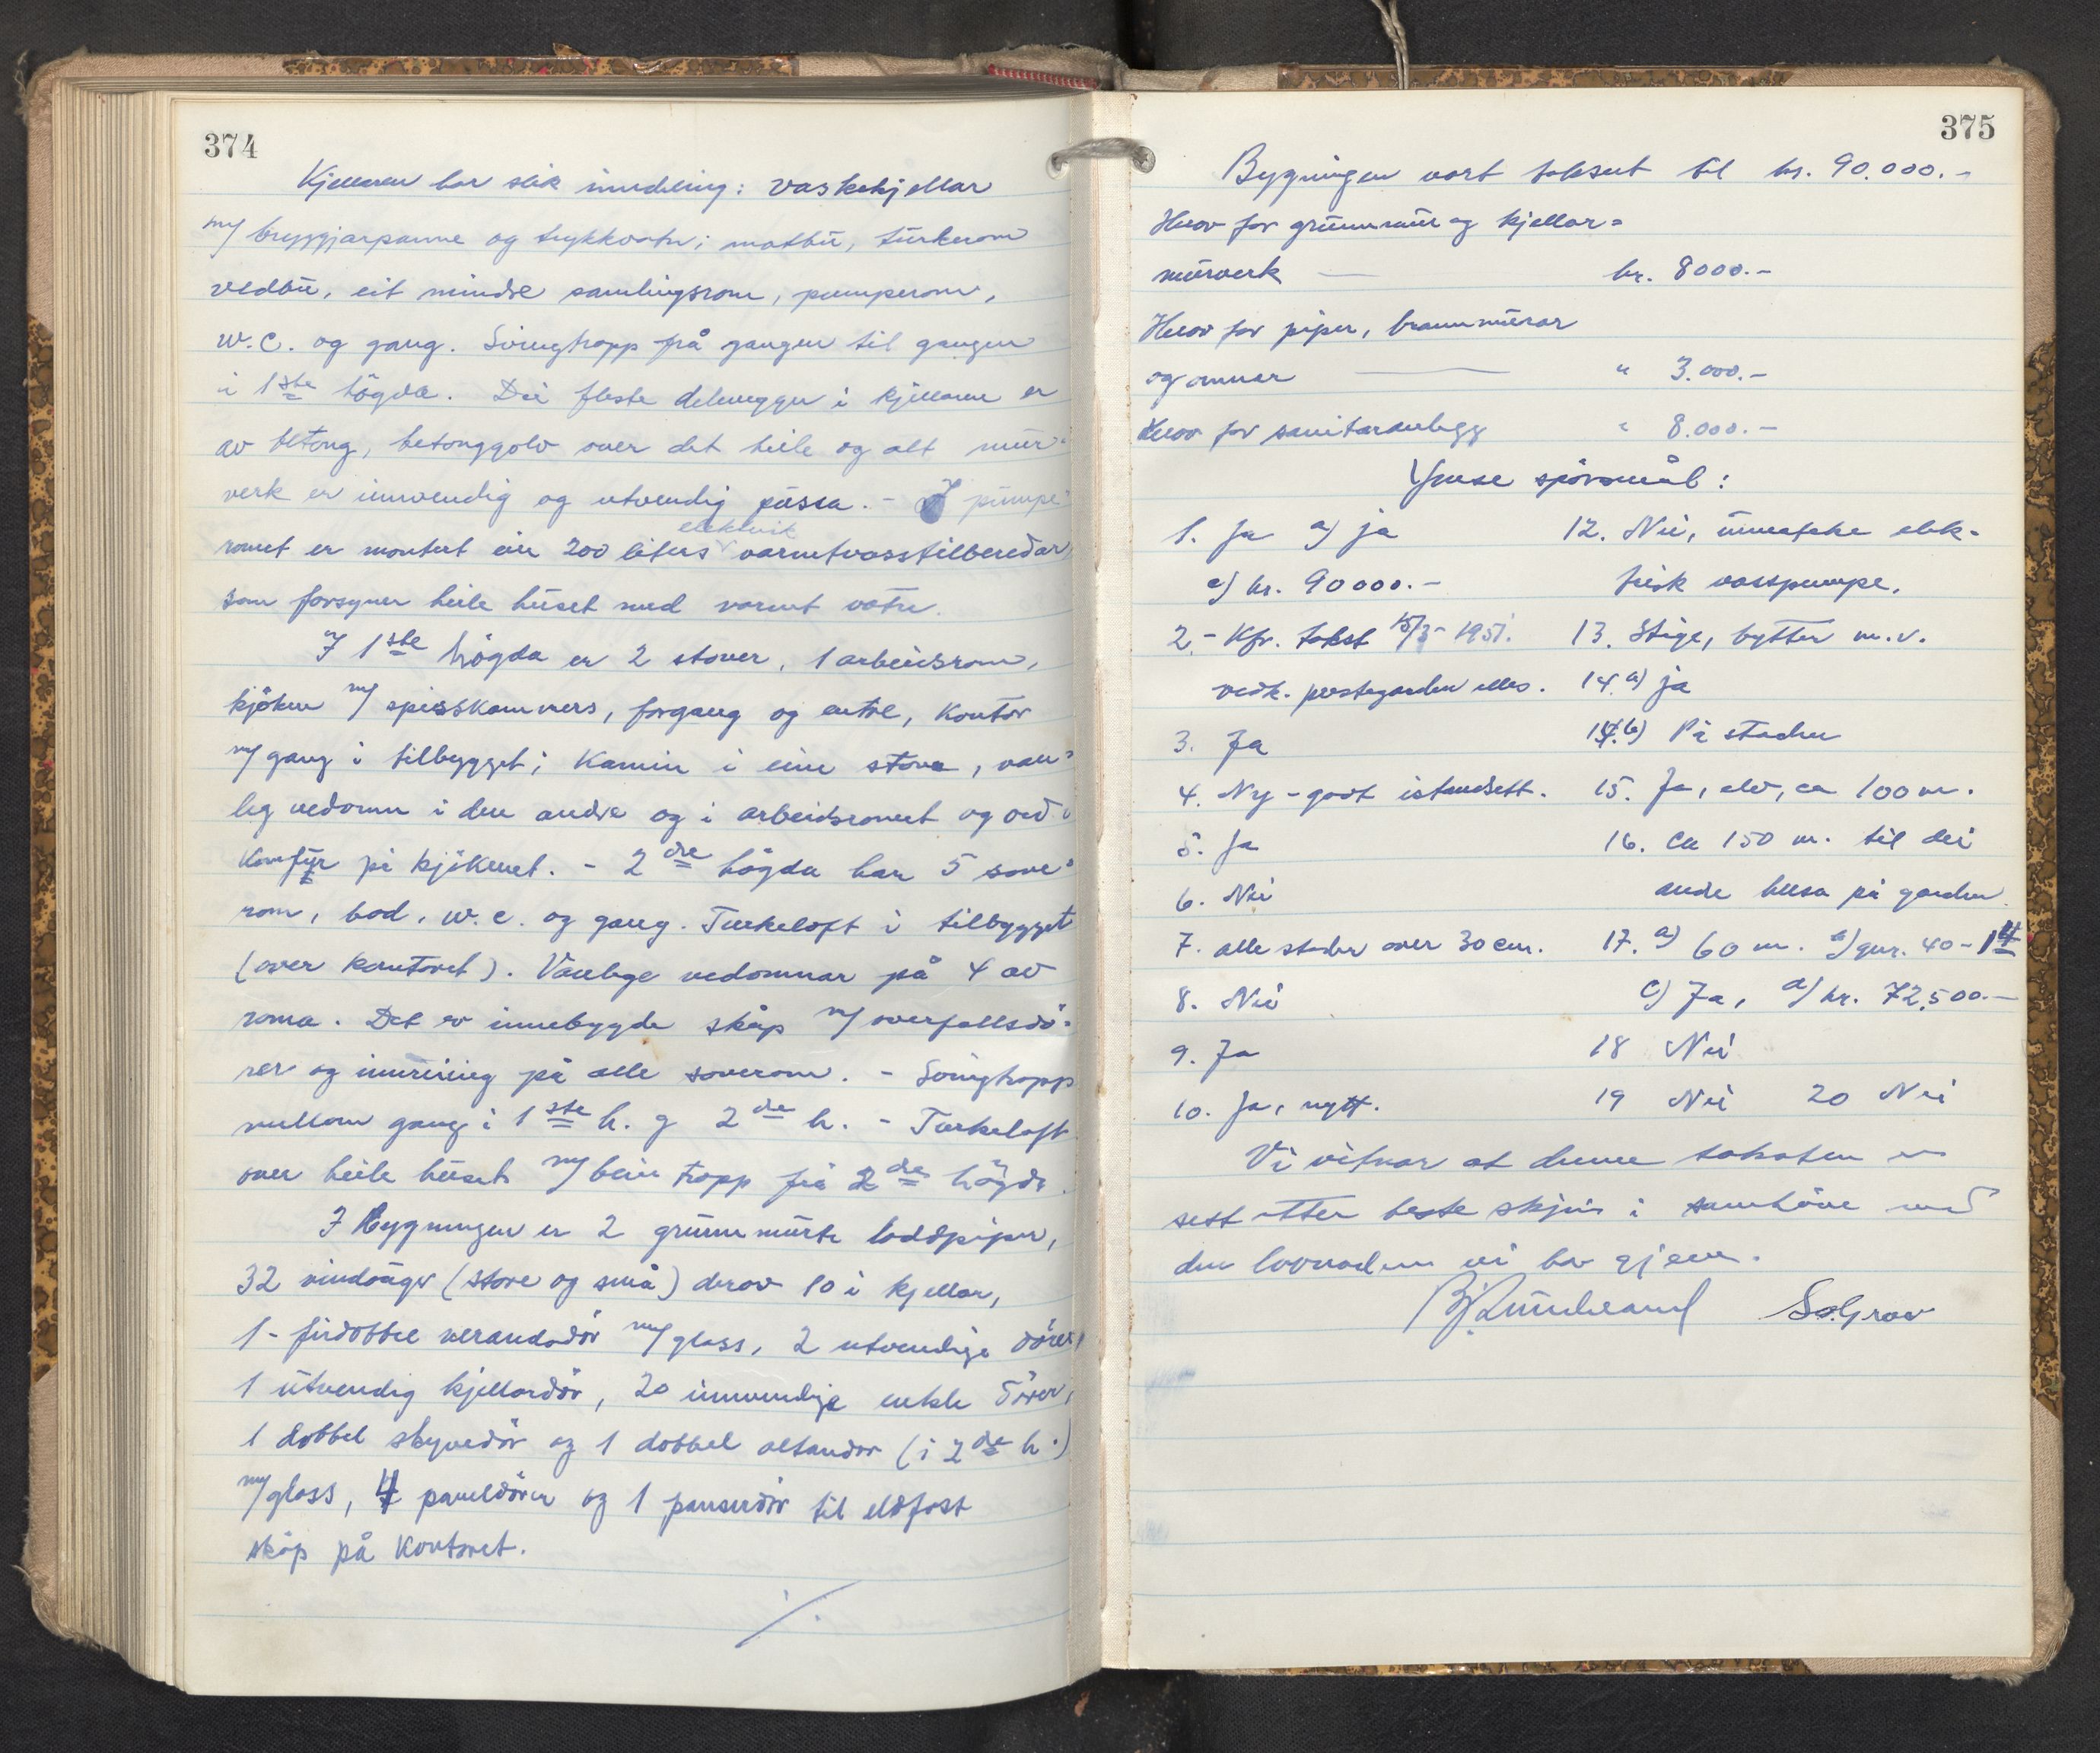 374
Kjellaren har slik inndeling: vaskekjellar
m/ bryggjarpanne og trykkvatn; matbu, turkerom
vedbu, eit mindre samlingsrom, pumperom,
w.c. og gang. Svingtrapp frå gangen til gangen
i 1ste högda. Dei fleste delevegger i kjellaren er
av betong, betonggolv over det heile og alt mur-
verk er innvendig og utvendig pussa. - I pumpe-
romet er montert ein 200 liters elektrisk varmtvasstilberedar,
som forsyner heile huset med varmt vatn.
I 1ste högda er 2 stover, 1 arbeidsrom,
kjöken m/ spisskammers, forgang og entre, kontor
m/ gang i tilbygget; Kamin i eine stova, van-
leg vedomn i den andre og i arbeidsromet og ved-
komfyr på kjökenet. - 2dre högda har 5 sove-
rom, bod, w.c. og gang. Turkeloft i tilbygget
(over kontoret). Vanlege vedomnar på 4 av
roma. Det er innebygde skåp m/ overfallsdö-
rer og innreiing på alle soverom. - Svingtrapp
mellom gang i 1ste h. og 2dre h. - Turkeloft
over heile huset m/ bein trapp frå 2dre högda.
I bygningen er 2 grunnmurte loddpiper,
32 vindauger (store og små) derav 10 i kjellar,
1 - firdobbel verandadör m/ glass, 2 utvendige dörer,
1 utvendig kjellardör, 20 innvendige enkle dörer,
1 dobbel skyvedör og 1 dobbel altandör (i 2dre h.)
m/ glass, 4 paneldörer og 1 panserdör til eldfast
skåp på kontoret.
./.
375
Bygningen vart taksert til kr. 90.000.-
Herav for grunnmur og kjellar-
murverk kr. 8000.-
Herav for piper, brannmurar
og omnar " 3.000.-
Herav for sanitæranlegg " 8.000.-
Ymse spörsmål:
1. Ja a) ja
c) kr. 90000.-
2.- Kfr. takst 15/5 1951.
vedk. prestegarden elles.
3. Ja
4. Ny - godt istandsett.
5. Ja
6. Nei
7. alle stader over 30 cm.
8. Nei
9. Ja
10. Ja, nytt.
12. Nei, unnateke elek-
trisk vasspumpe.
13. Stige, bytter m.v.
14. a) ja
14. b) På staden
15. Ja, elv, ca 100 m.
16. Ca 150 m. til dei
andre husa på garden.
17. a) 60 m. b) gnr. 40 - 14
c) Ja, d) kr. 72.500.-
18 Nei
19 Nei 20 Nei
Vi vitnar at denne taksten er
sett etter beste skjön i samhöve med
den lovnaden vi har gjeve.
S. Grov